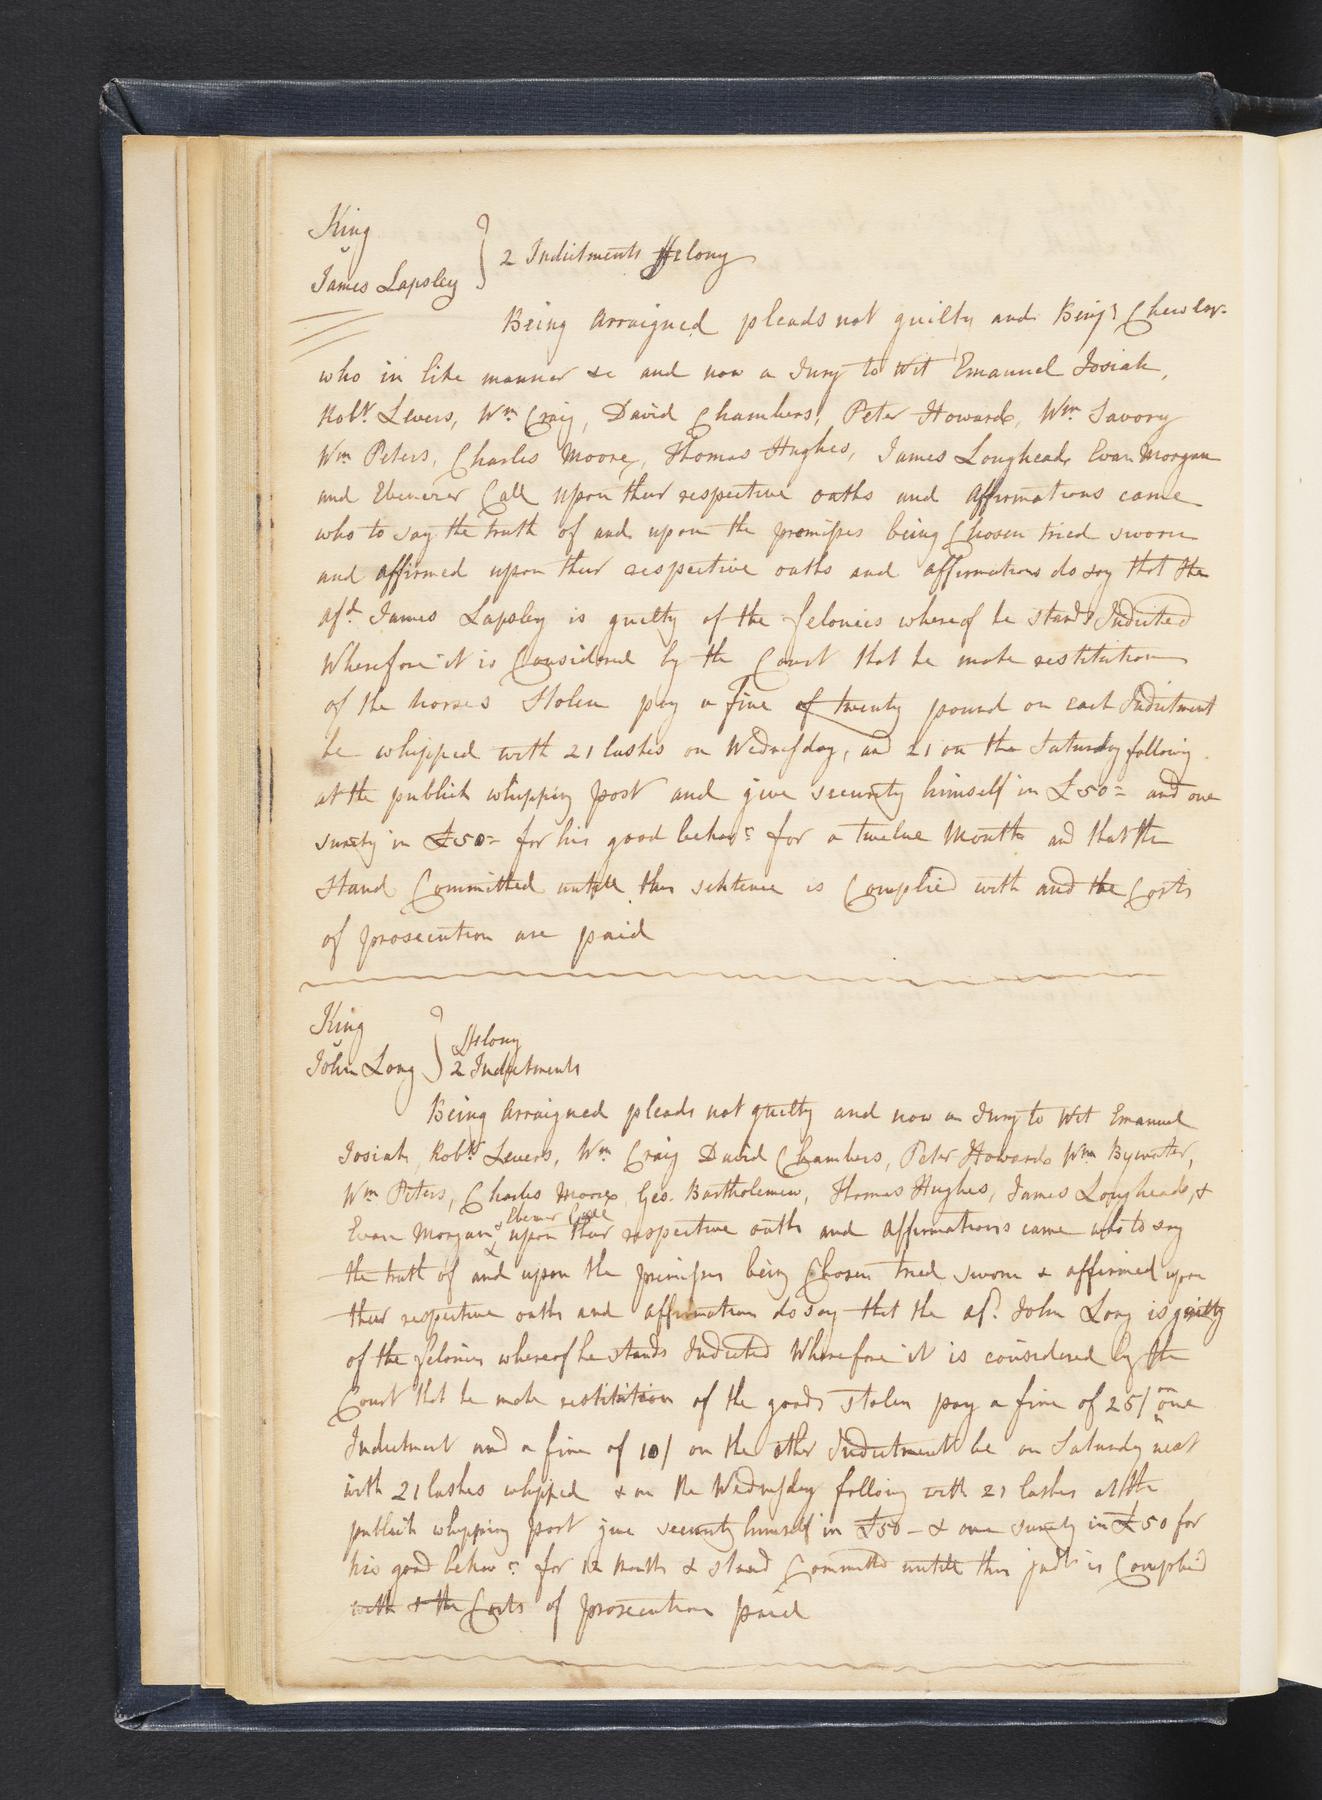 King
v
James Lapsley } 2 Indictments ffelony
Being Arraigned pleads not guilty and Benjn Chew Esqr
who in like manner &c and now a Jury to Wit Emanuel Josiah,
Robt Levers, Wm Craig, David Chambers, Peter Howard, Wm Savory
Wm Peters, Charles Moore, Thomas Hughes, James Loughead, Evan Morgan
and Ebenezer Call upon their respective oaths and Affirmations came
who to say the truth of and upon the premises being Chosen tried sworn
and affirmed upon their respective oaths and affirmations do say that the
afd James Lapsley is guilty of the felonies whereof he stands Indicted
Wherefore it is Considered by the Court that he make restitution
of the horses Stolen pay a fine of twenty pound on each Indictment
be whipped with 21 lashes on Wednesday, and 21 on the Saturday following
at the publick whipping post and give security himself in £50= and one
surety in £50= for his good behavr for a twelve Month and that he
Stand Committed untill this sentence is Complied with and the Costs
of prosecution are paid
King
v
John Long } ffelony
2 Indictments
Being Arraigned pleads not guilty and now a Jury to Wit Emanuel
Josiah, Robt Levers, Wm Craig David Chambers, Peter Howard Wm Bywater,
Wm Peters, Charles Moore, Geo. Bartholemew, Thomas Hughes, James Loughead, &
Evan Morgan & Ebenezer Call upon their respective oaths and Affirmations came who to say
the truth of and upon the premises being Chosen tried sworn & affirmed upon
their respective oaths and affirmation do say that the afd John Long is guilty
of the felonies whereof he stands Indicted Wherefore it is considered by the
Court that he make restitution of the goods stolen pay a fine of 25/ on one
Indictment and a fine of 10/ on the other Indictment be on Saturday next
with 21 lashes whipped & on the Wednesday following with 21 lashes at the
publick whipping post give security himself in £50 - & one surety in £50 for
his good behavr for 12 Month & stand Committed untill this judt is Complied
with & the Costs of prosecution paid